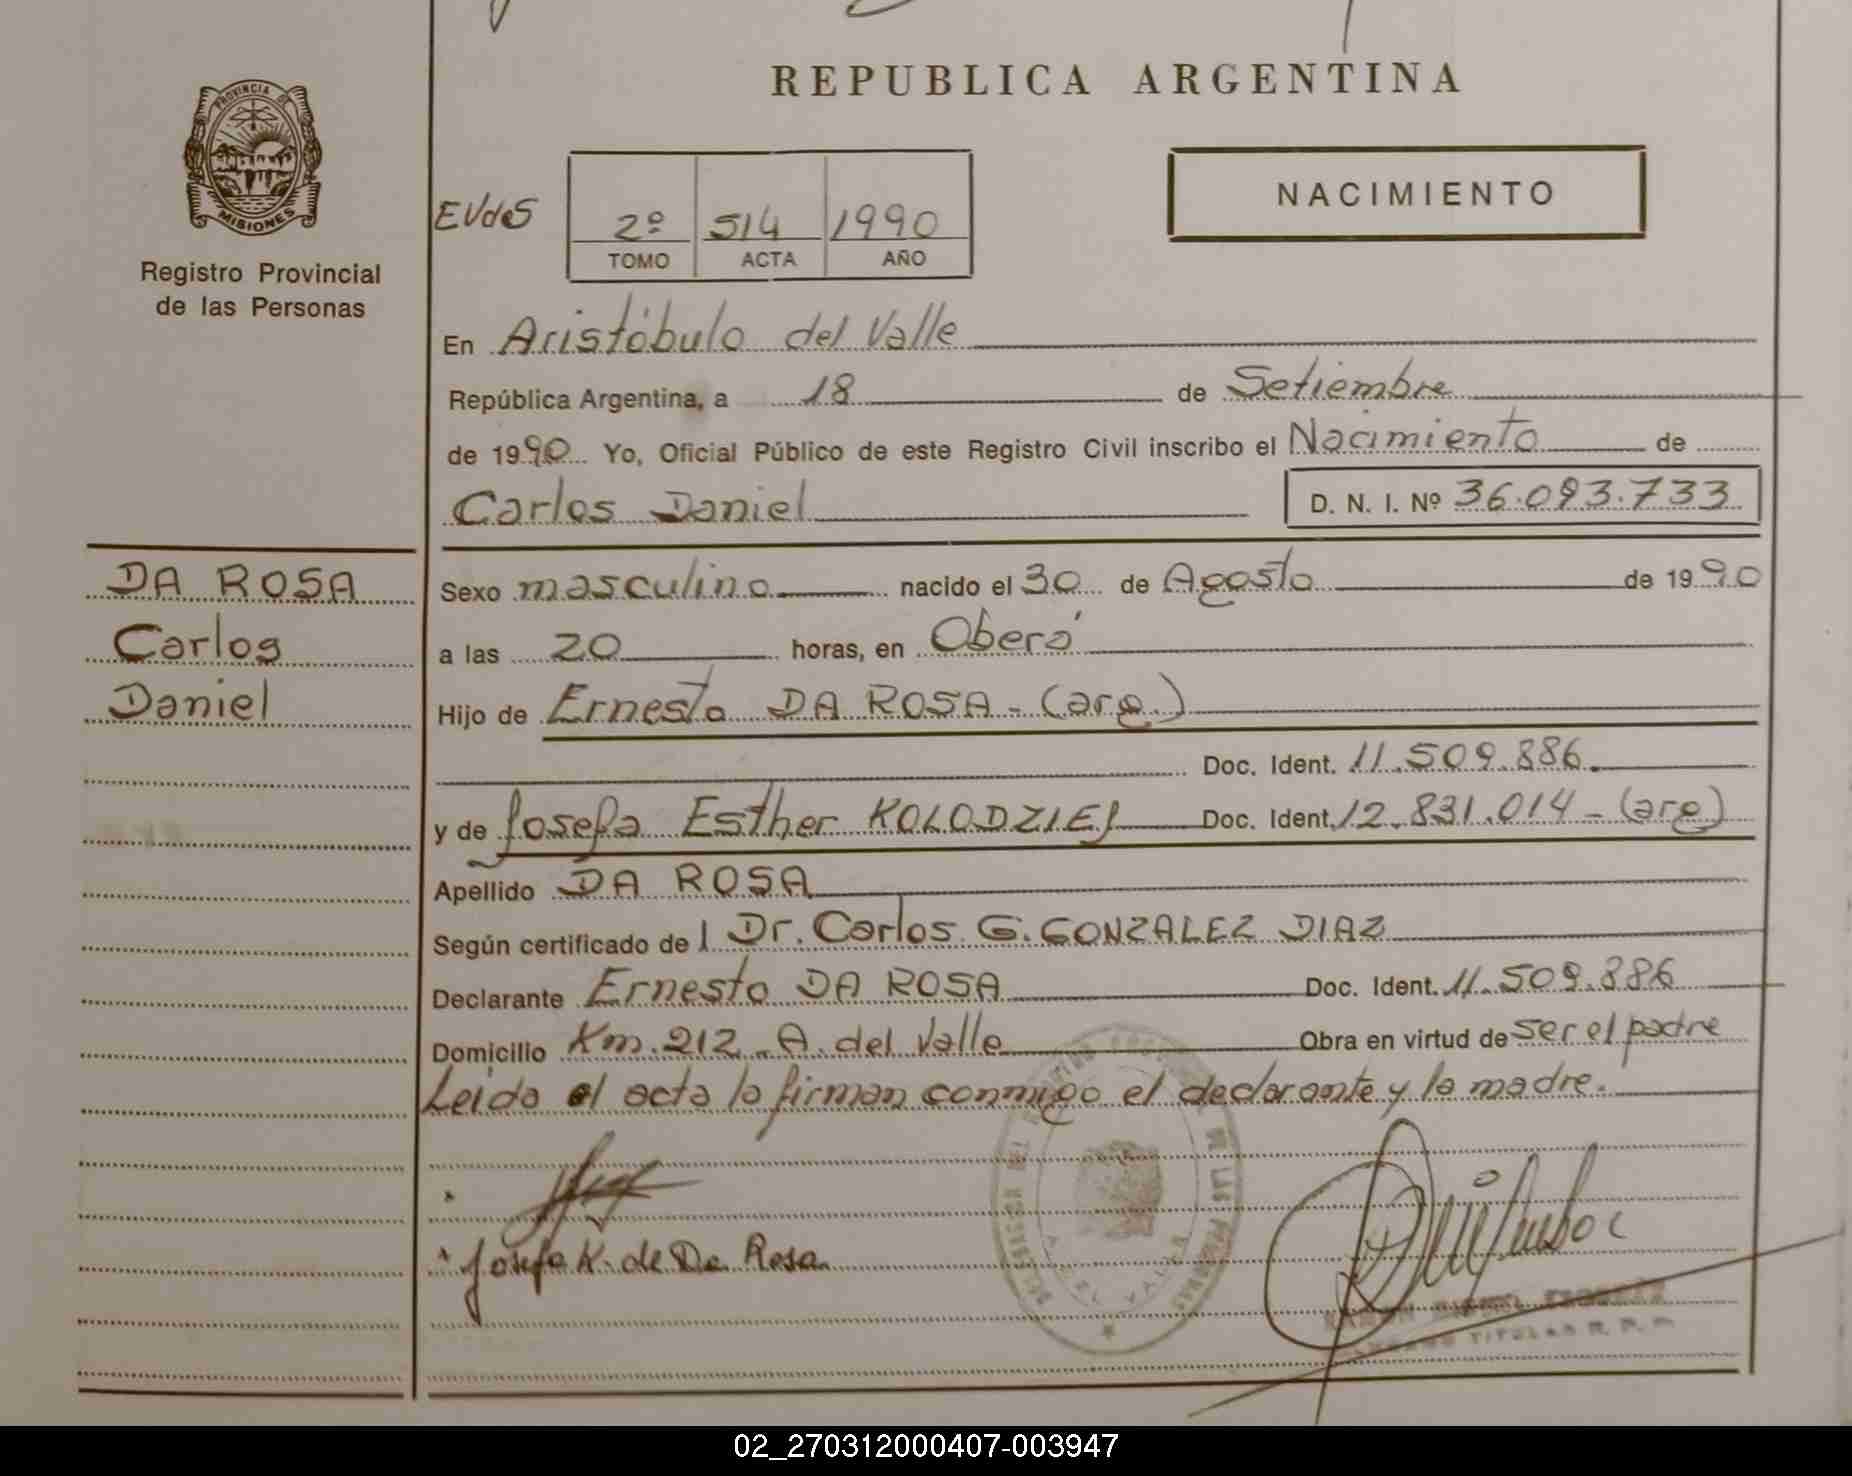 REPUBLICA ARGENTINA
PROVINCIA DE
MISIONES
Registro Provincial
de las Personas
NACIMIENTO
EVdeS
2º 514 1990
TOMO ACTA AÑO
En Aristóbulo del Valle
República Argentina, a 18 de Setiembre
de 1990 Yo, Oficial Público de este Registro Civil inscribo el Nacimiento de
Carlos Daniel D. N. I. Nº 36.093.733
DA ROSA
Carlos
Daniel
Sexo masculino nacido el 30 de Agosto de 1990
a las 20 horas, en Oberá
Hijo de Ernesto DA ROSA - (arg.)
Doc. Ident. 11.509.886.
y de Josefa Esther KOLODZIEJ Doc. Ident. 12.831.014 - (arg)
Apellido DA ROSA
Según certificado de l Dr. Carlos G. GONZALEZ DIAZ
Declarante Ernesto DA ROSA Doc. Ident. 11.509.886
Domicilio Km. 212 - A. del Valle Obra en virtud de ser el padre
Leida el acta la firman conmigo el declarante y la madre.
Josefa K. de Da Rosa
DE LAS PERSONAS
VALLE
TITULAR R. P. P.
02_270312000407-003947